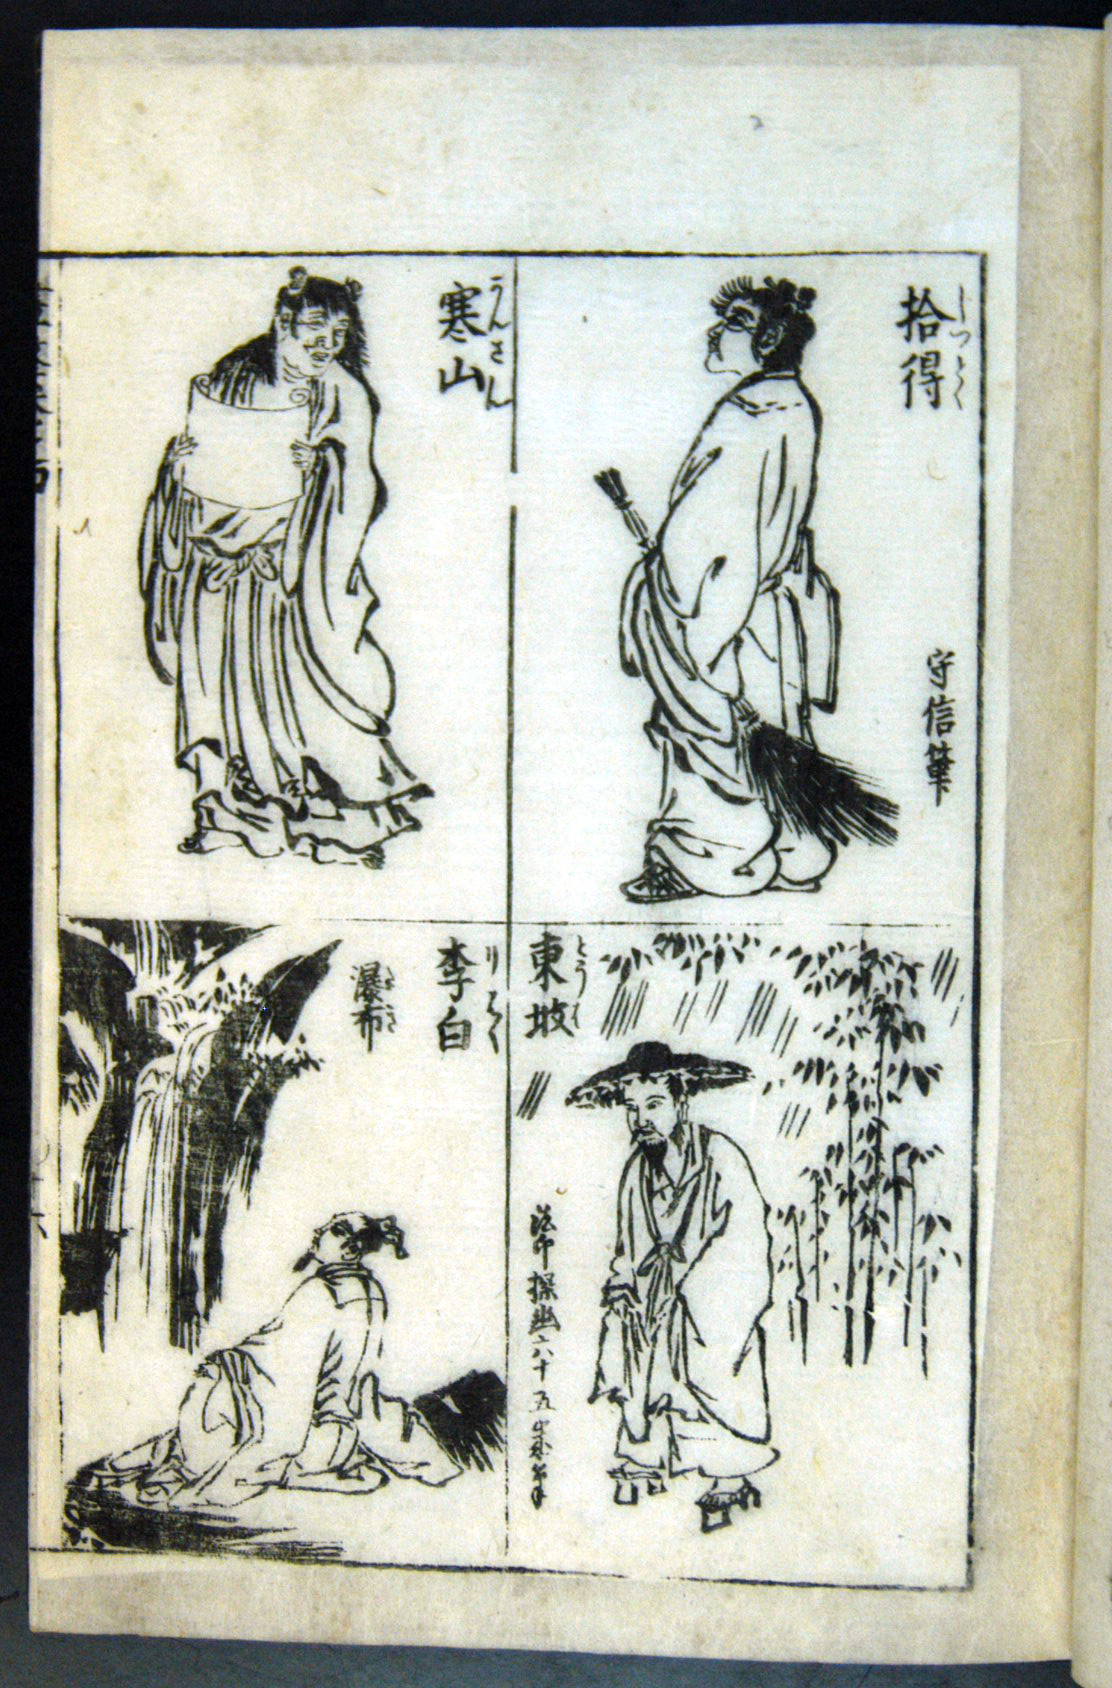 拾得
じつとく
守信筆
寒山
かんさん
東坡
とうば
法印探幽六十五
李白
りはく
瀑布